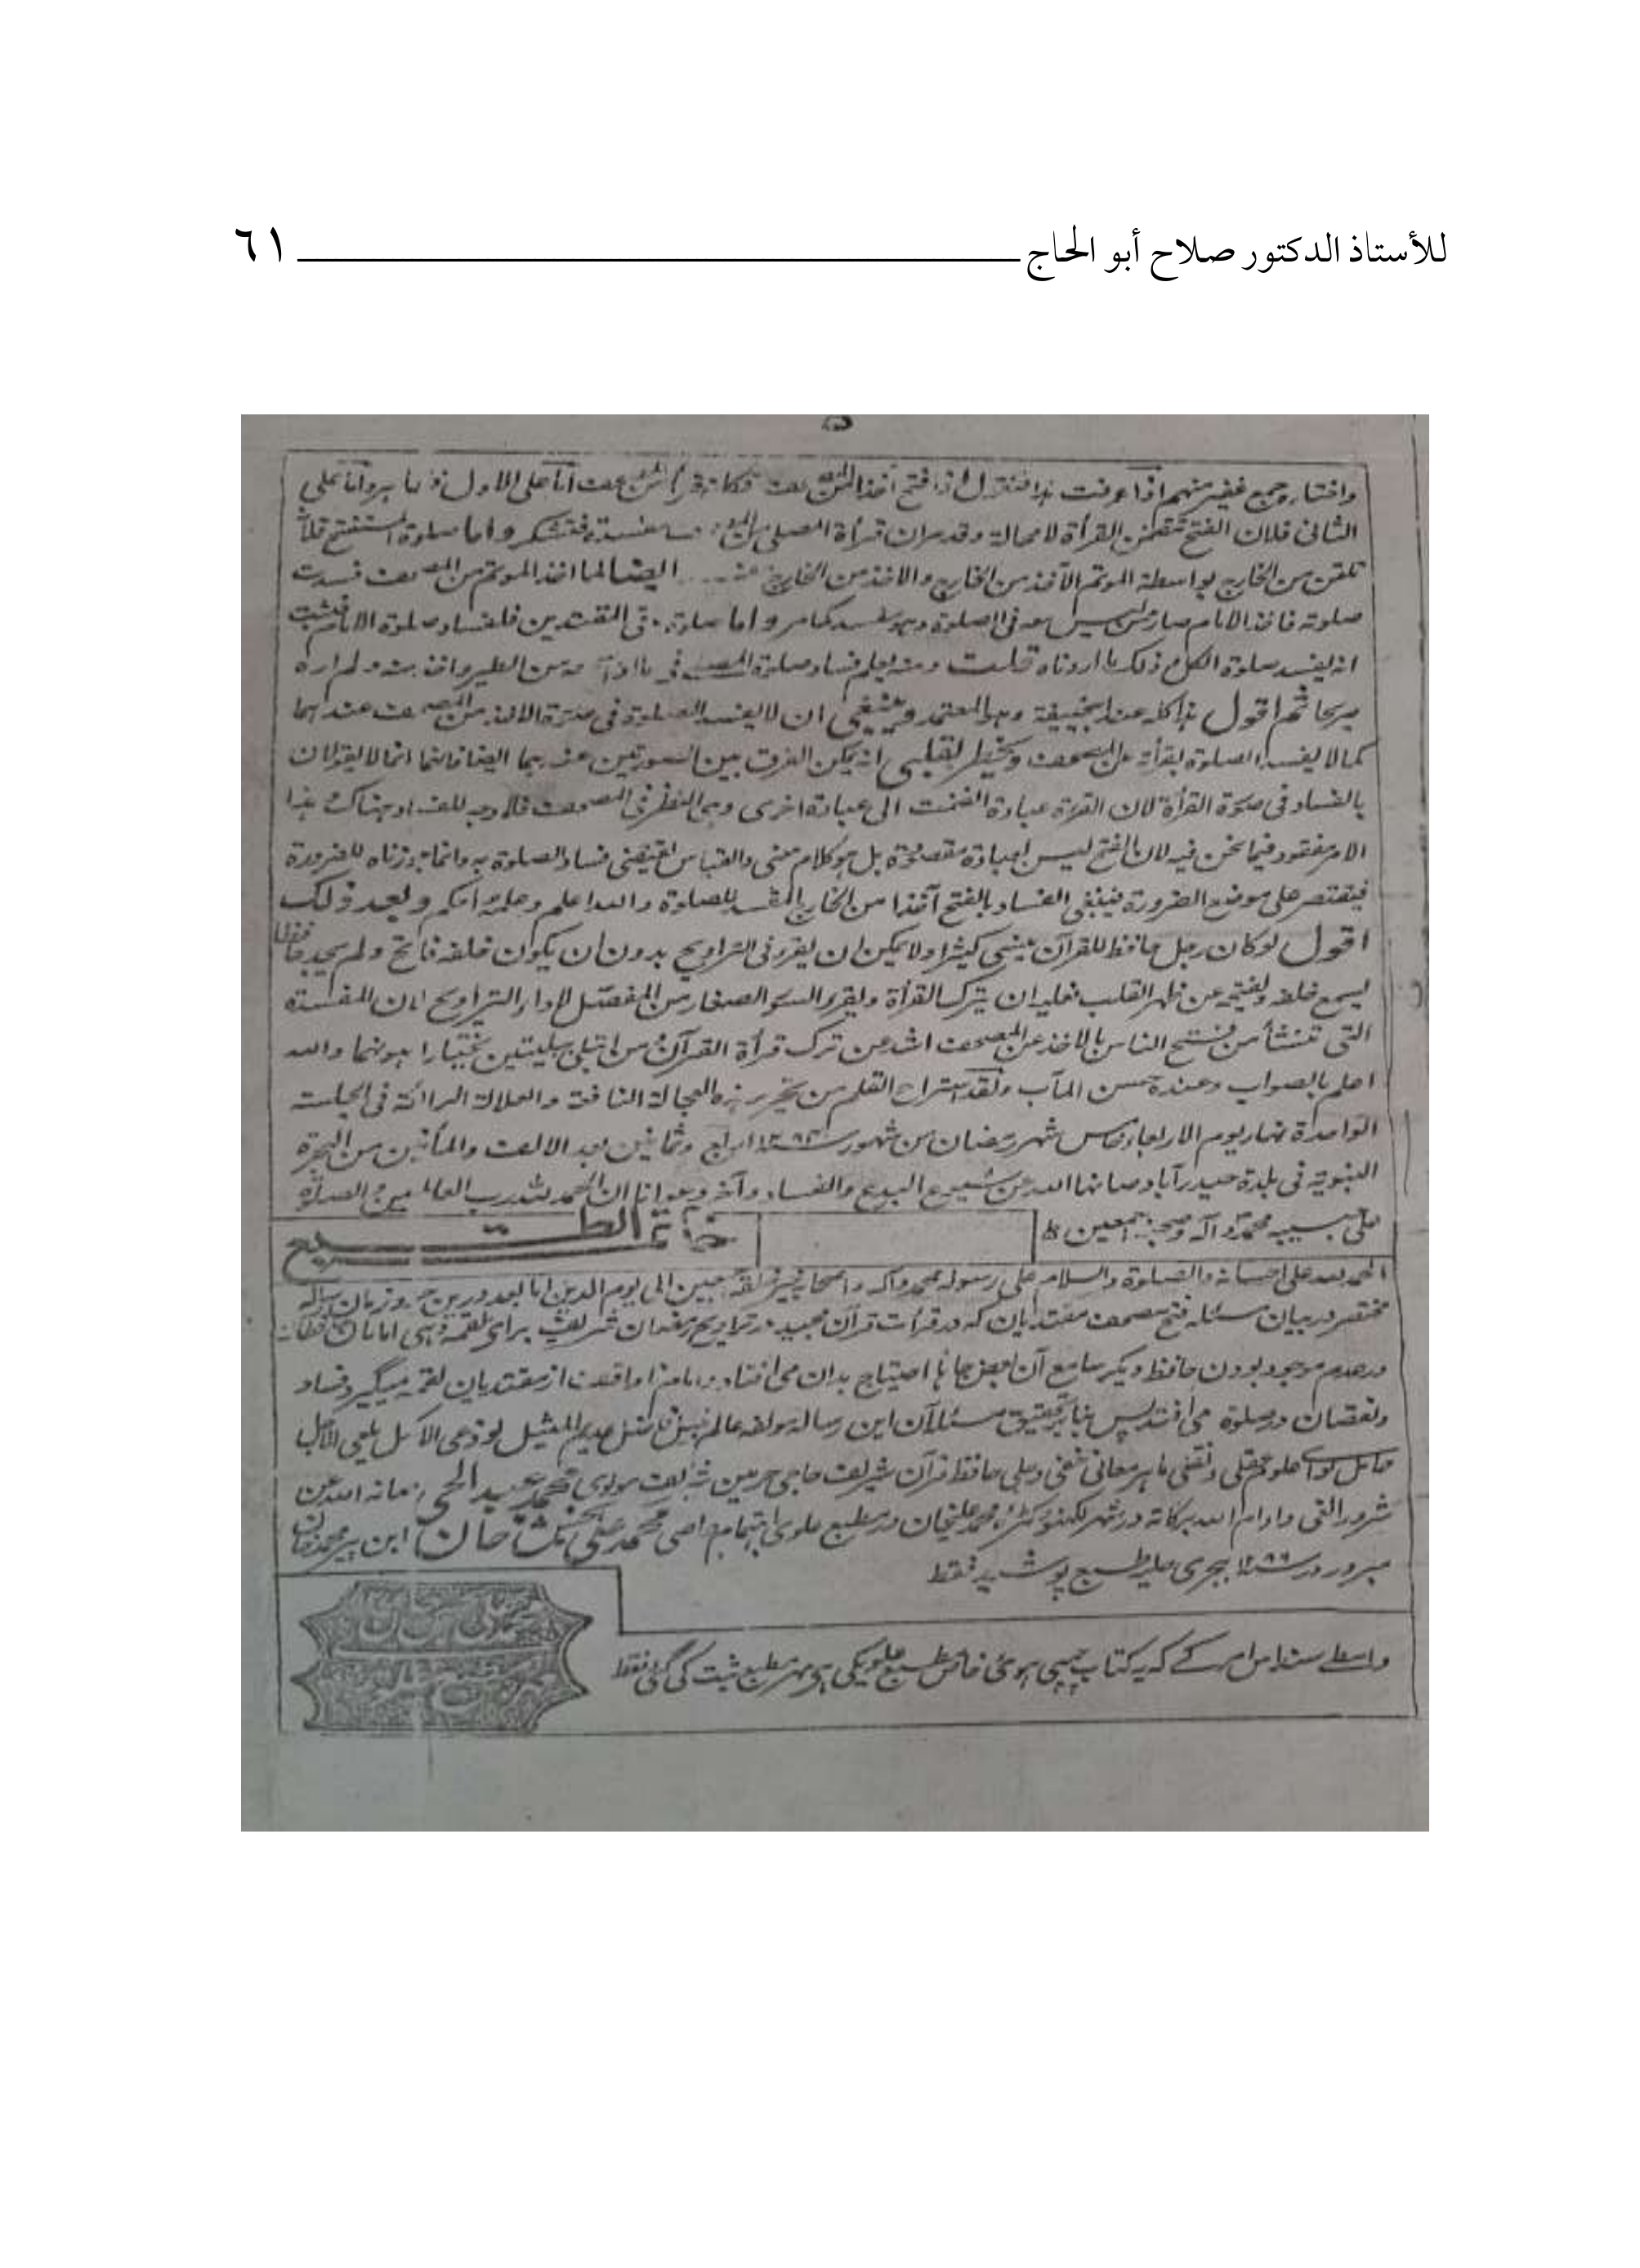 للأستاذ الدكتور صلاح أبو الحاج ٦١
واختاره جمع غفير منهم اذا عرفت هذا فنقول اذا فتح آخذا من المصحف فكانه قرأ من المصحف اما على الاول فظاهر واما على
الثاني فلان الفتح تتضمن القرأة لا محالة وقد مر ان قرأة المصلي من المصحف مفسدة فتشكر واما صلوة المستفتح فلانه
تلقن من الخارج بواسطة الموتم الآخذ من الخارج والاخذ من الخارج ايضا لما اخذ الموتم من المصحف فسدت
صلوته فاخذ الامام صار ممن ليس معه في الصلوة وهو مفسد كما مر واما صلوة باقي المقتدين فلفساد صلوة الامام فثبت
انه يفسد صلوة الكل ذلك ما اردناه قلت ومنه يعلم فساد صلوة من الغير واخذ منه ولم اره
صريحا ثم اقول هذا كله عند ابيحنيفة وهو المعتمد وينبغي ان لا يفسد الصلوة في صورة الاخذ من المصحف عندهما
كما لا يفسد الصلوة بقرأته من المصحف ويخطر بقلبي انه يمكن الفرق بين الصورتين عندهما ايضا فانهما انما لا يقولان
بالفساد في صورة القرأة لان القرأة عبادة انضمت الى عبادة اخرى وهي النظر في المصحف فلا وجه للفساد وهناك هذا
الامر مفقود فيما نحن فيه لان الفتح ليس بعبادة مقصودة بل هو كلام معنى والقياس اقتضى فساد الصلوة به وانما جوزناه للضرورة
فيقتصر على موضع الضرورة فينبغي الفساد بالفتح آخذا من الخارج المفسد للصلوة والله اعلم وعلمه احكم وبعد ذلك
اقول لو كان رجل حافظ للقرآن ينسى كثيرا ولا يمكن ان يقرء في التراويح بدون ان يكون خلفه فاتح ولم يجد حافظا
يسمع خلفه ويفتحه عن ظهر القلب فعليه ان يترك القرأة ويقرء السور الصغار من المفصل لاداء التراويح لان المفسدة
التي تنشأ من فتح الناس بالاخذ من المصحف اشد من ترك قرأة القرآن ومن ابتلي ببليتين يختار اهونهما والله
اعلم بالصواب وعنده حسن المآب ولقد استراح القلم من تحرير هذه العجالة النافعة والعلالة الرائقة في الجلسة
الواحدة نهار يوم الاربعاء خامس شهر رمضان من شهور سنة ١٢٨٤ اربع وثمانين بعد الالف والمأتين من الهجرة
النبوية في بلدة حيدرآباد صانها الله عن شيوع البدع والفساد وآخر دعوانا ان الحمد لله رب العالمين والصلوة
على حبيبه محمد وآله وصحبه اجمعين
خاتم الطبع
الحمد لله على احسانه والصلوة والسلام على رسوله محمد وآله واصحابه اجمعين الى يوم الدين اما بعد درين زمان رساله
مختصر در بيان مسئله فتح مصحف مقتديان كه در قرأت قرآن مجيد در تراويح رمضان شريف براى لقمه دهى امامان
در عدم موجود بودن حافظ ديگر سامع آن بعض جا با احتياج بدان مى افتاد از مقتديان لقمه ميگيرد فساد
ونقصان در صلوة مى افتد پس بنا بر تحقيق مسئله آن اين رساله مؤلفه عالم نبيل فاضل عديم المثيل لوذعي الاكمل يلمعي الاجل
حامل لواى علوم عقلي ونقلي ماهر معاني خفي وجلي حافظ قرآن شريف حاجي حرمين شريف مولوي محمد عبد الحي صانه الله عن
شرور الغي وادام الله بركاته در شهر لكهنو كٹره محمد عليخان در مطبع علوى باهتمام محمد علي بخش خان ابن
مبرور در سنه ١٢٨٨ هجرى حليه طبع پوشيد فقط
واسطے سند اس امر كے كه يه كتاب چهپى هوئى خاص مطبع علوى كى هے مهر مطبع ثبت كى گئى فقط